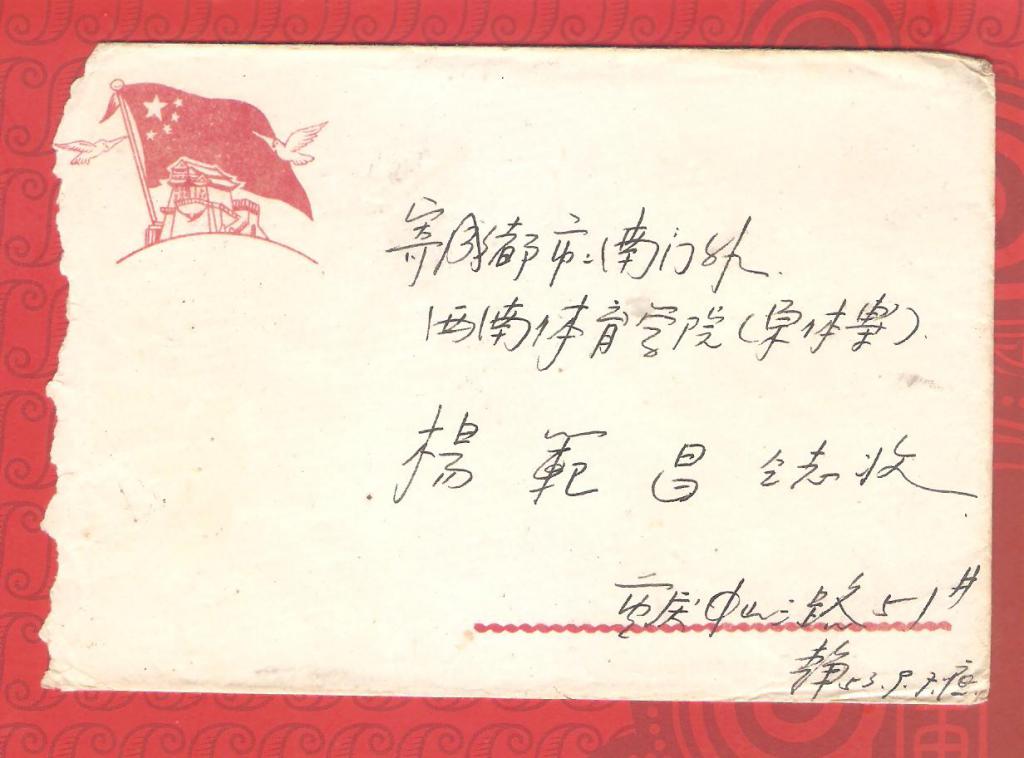 寄成都市南门外
西南体育学院(原体専)
楊範昌仝志收
重庆中山三路51#
静53.9.7.